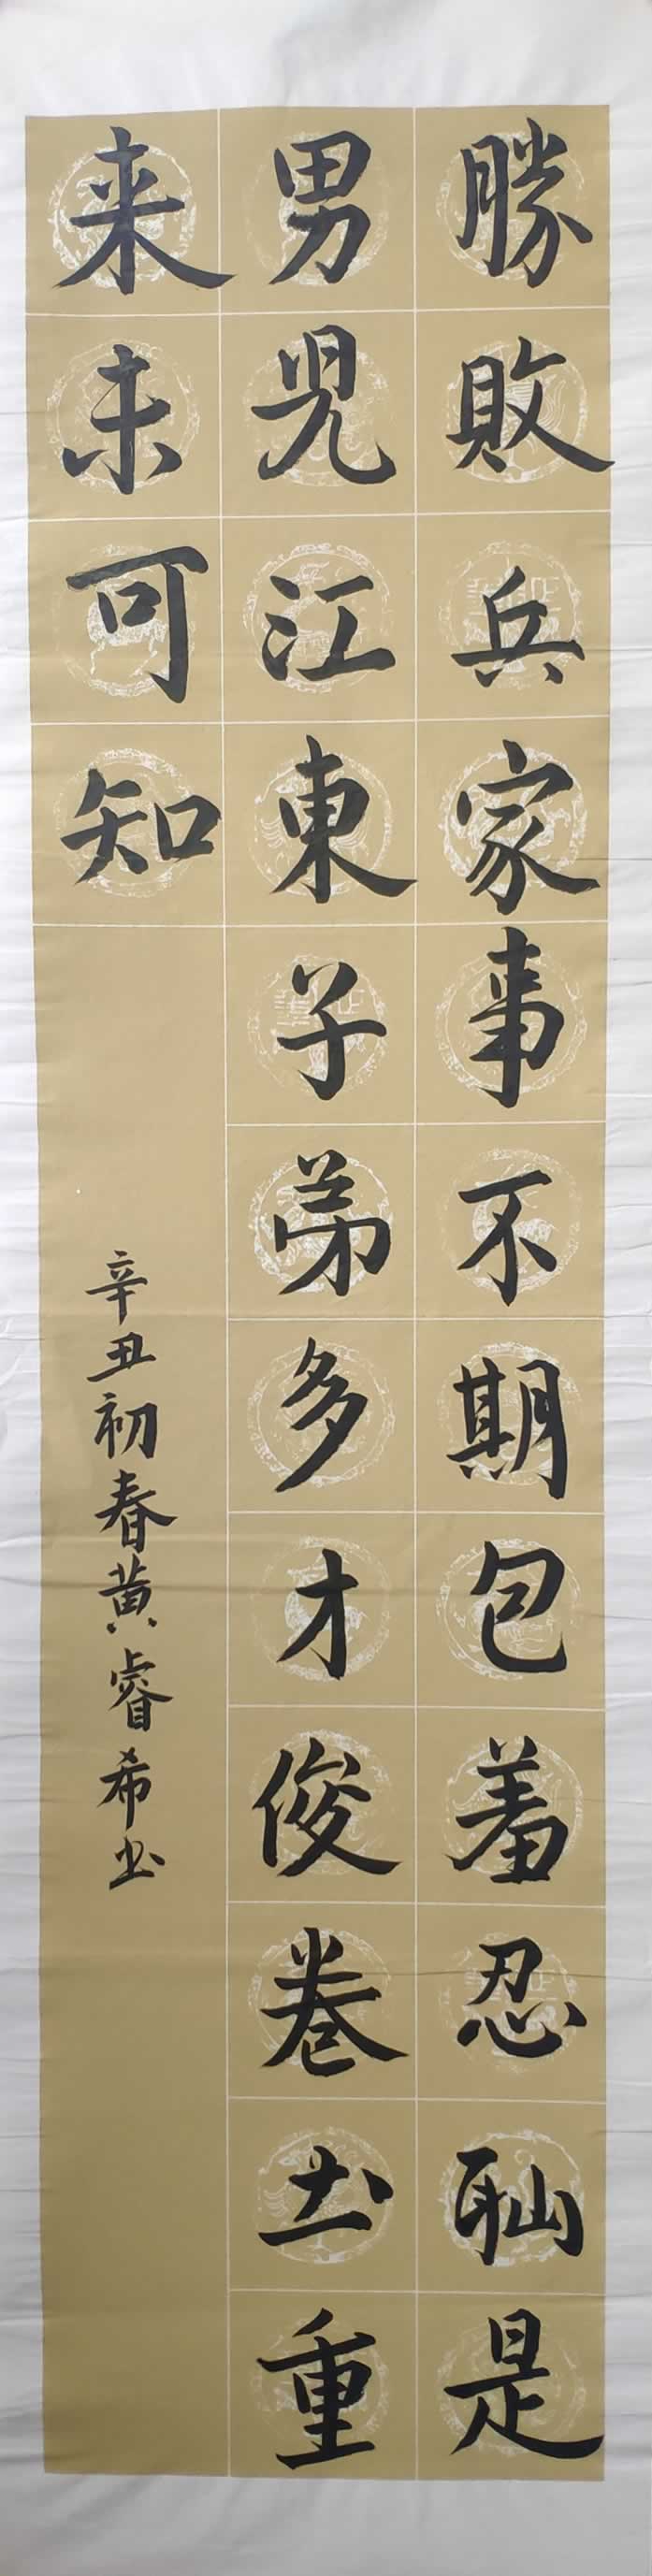 勝敗兵家事不期包羞忍耻是
男児江東子弟多才俊卷土重
来未可知
辛丑初春黄睿希书